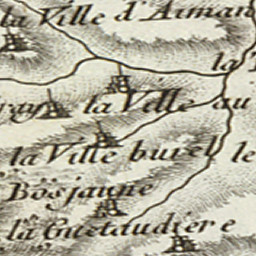 la Ville d'Aiman
la
la Ville au
la Ville burel le
Bosjaune
la Guetaudiere